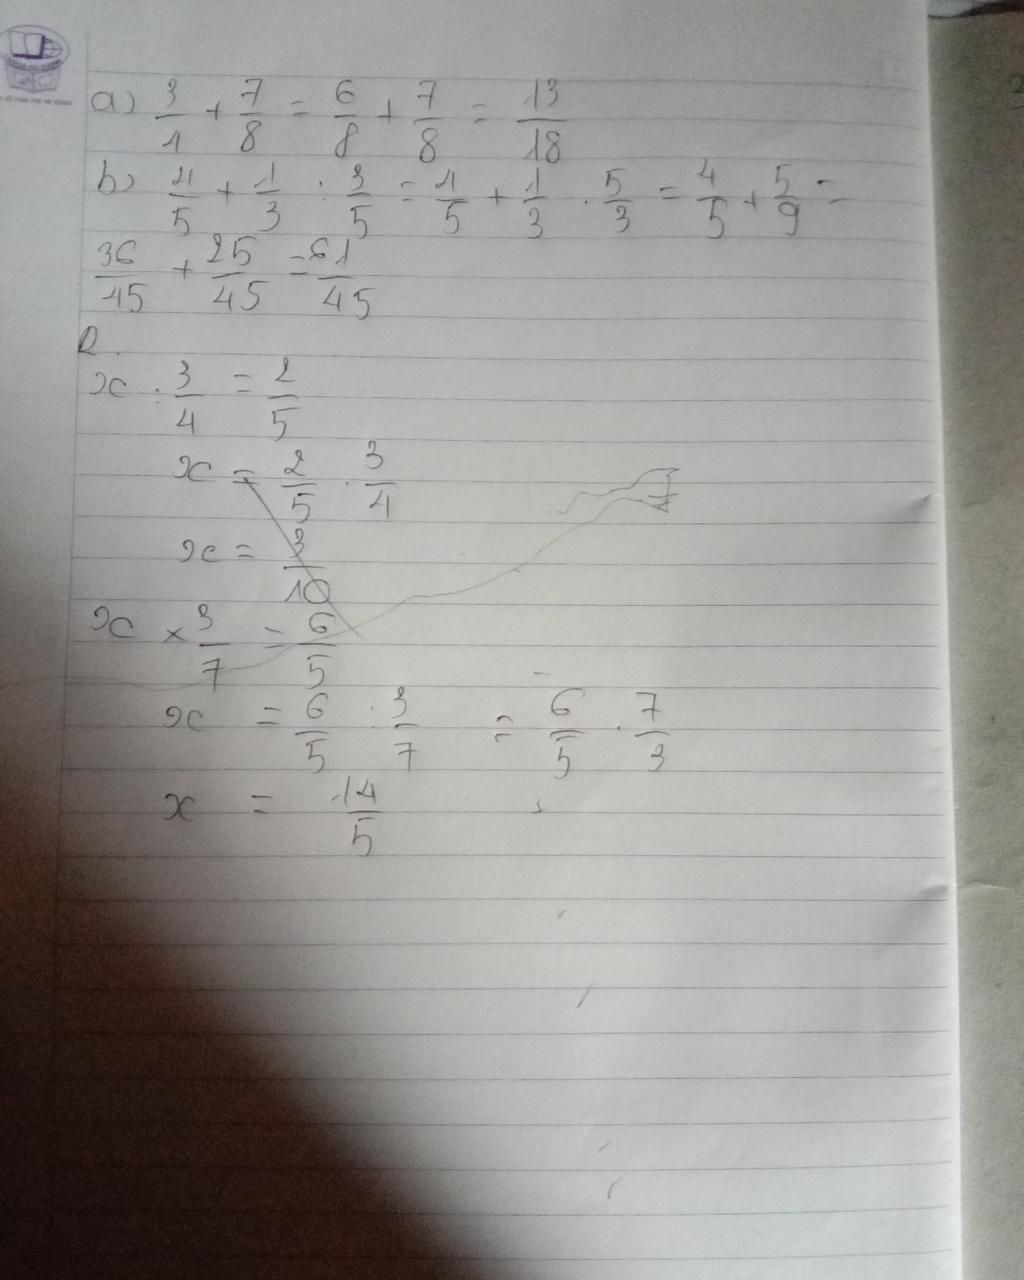 a) 3/4 + 7/8 = 6/8 + 7/8 = 13/18
b) 4/5 + 1/3 : 3/5 = 4/5 + 1/3 . 5/3 = 4/5 + 5/9 =
36/45 + 25/45 = 61/45
2.
x : 3/4 = 2/5
x = 2/5 . 3/4
x = 3/10
x × 3/7 = 6/5
x = 6/5 : 3/7 = 6/5 . 7/3
x = 14/5